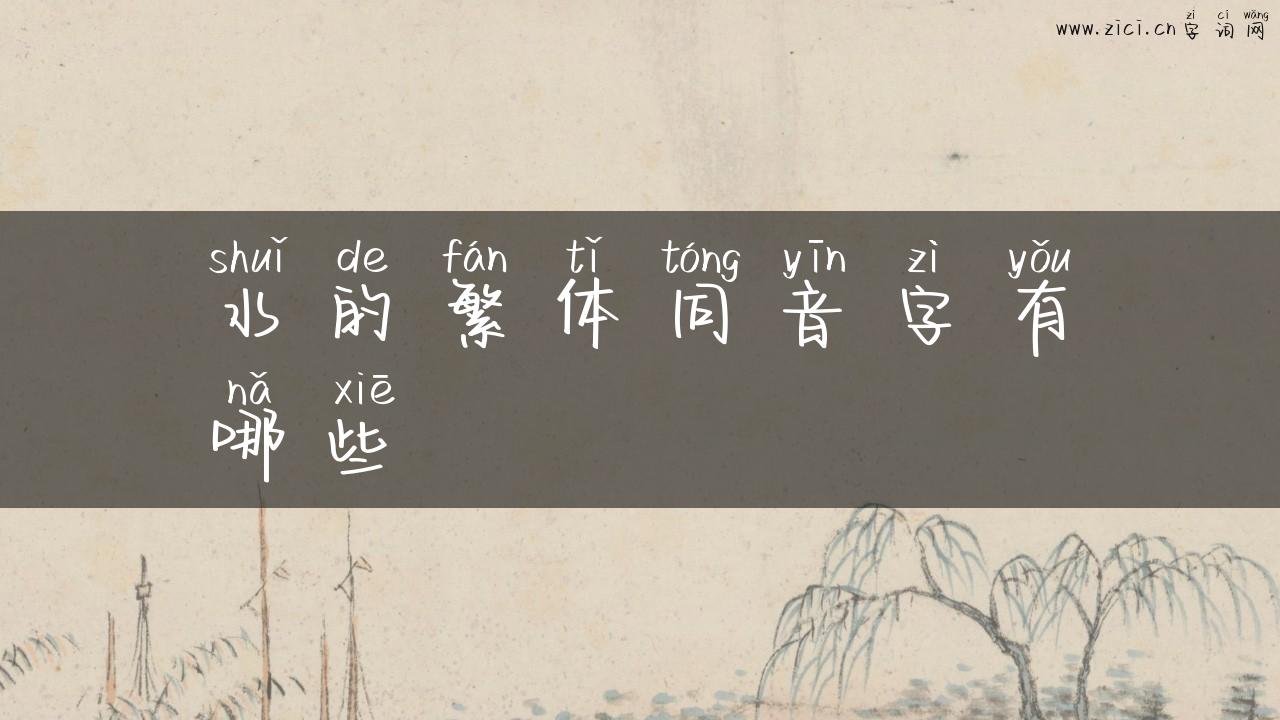 zì cí wǎng
www.zici.cn 字词网
shuǐ de fán tǐ tóng yīn zì yǒu
水的繁体同音字有
nǎ xiē
哪些